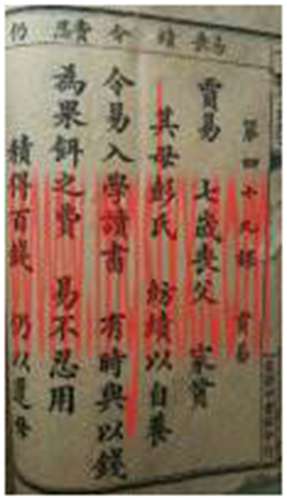 易喪 績 令 費忍 仍
第四十九課 賈易
賈易 七歲喪父 家貧
其母彭氏 紡績以自養
令易入學讀書 有時與以錢
為果餌之費 易不忍用
積得百錢 仍以還母